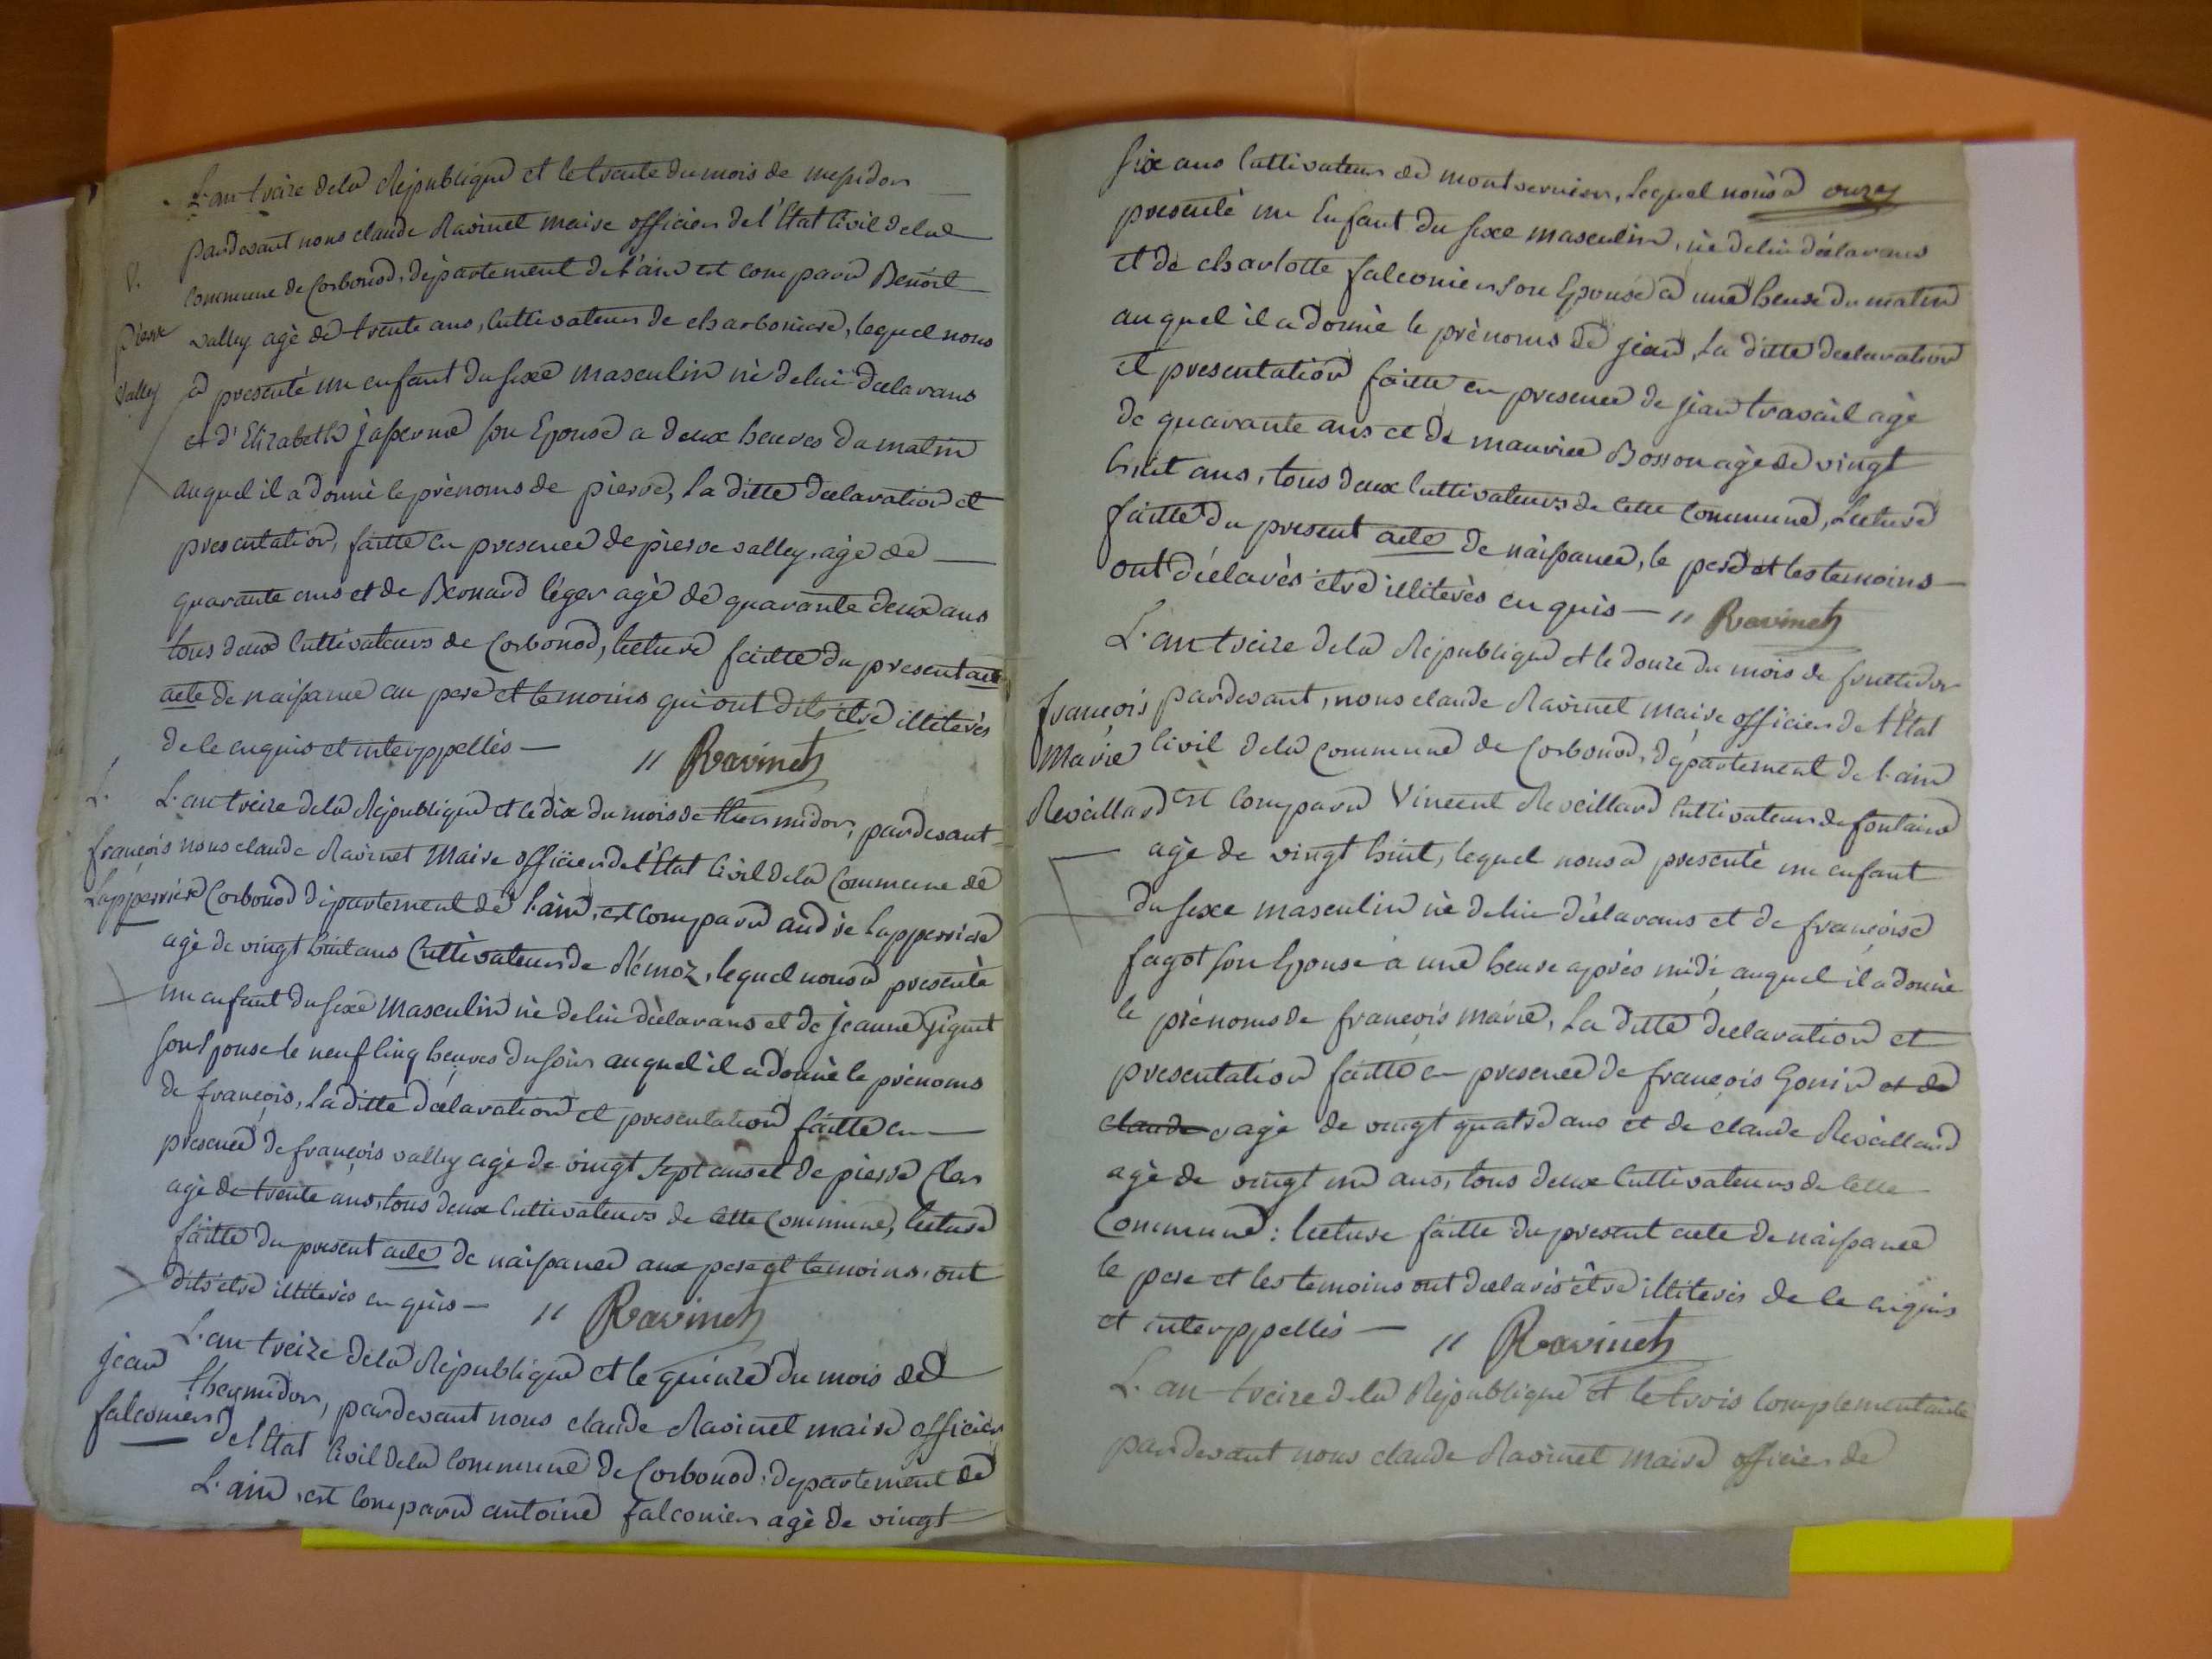 L'an treize de la République et le trente du mois de messidor
pardevant nous claude Ravinet maire officier de l'Etat Civil de la
V.
commune de Corbonod, département de l'ain est comparu Benoit
pierre
valley agè de trente ans, Cultivateur de charboniere, lequel nous
valley
a presentè un enfant du sexe masculin nè de lui declarans
et d'Elizabeth jaserme son Epouse a deux heures du matin
auquel il a donnè le prènoms de pierre, la ditte declaration et
presentation, faitte en presence de pierre valley, agè de
quarante ans et de Bernard lèger agè de quarante deux ans
tous deux Cultivateurs de Corbonod, lecture faitte du present acte
acte de naissance au pere et temoins qui ont dits etre illiterès
de le enquis et interppellès — " Ravinet
L. L'an treize de la République et le dix du mois de thermidor, pardevant
françois nous claude Ravinet Maire officier de l'Etat Civil de la Commune de
Lapperriere Corbonod département de l'ain, est comparu andre Lapperriere
agè de vingt huit ans Cultivateur de Rémoz, lequel nous a presentè
un enfant du sexe Masculin nè de lui dèclarans et de jeanne Giguet
son Epouse le neuf Cinq heures du soir auquel il a donnè le prènoms
de françois, la ditte declaration et presentation faitte en
presence de françois valley agè de vingt sept ans et de pierre Cler
agè de trente ans, tous deux Cultivateurs de Cette Commune, lecture
faitte du present acte de naissance aux pere et temoins, ont
dits etre illiterès en quis — " Ravinet
L'an treize de la République et le quinze du mois de
jean
thermidor, pardevant nous claude Ravinet maire officier
falconier
de l'Etat Civil de la Commune de Corbonod, departement de
L'ain, est Comparu antoine falconier agè de vingt
six ans Cultivateur de montvernier, lequel nous a onzes
presentè un Enfant du sexe masculin, nè de lui dèclarans
et de charlotte falconier son Epouse a une heure du matin
auquel il a donnè le prènoms de jean, la ditte declaration
et presentation faitte en presence de jean travail agè
de quarante ans et de maurice Bosson agè de vingt
huit ans, tous deux Cultivateurs de Cette Commune, Lecture
faitte du present acte de naissance, le pere et les temoins —
ont déclarès etre illiterès en quis — " Ravinet
L'an treize de la République et le douze du mois de fructidor
françois pardevant, nous claude Ravinet maire officier de l'Etat
Marie Civil de la Commune de Corbonod, département de l'ain
Reveillard est Comparu Vincent Reveillard Cultivateur de fontaine
agè de vingt huit, lequel nous a presentè un enfant
du sexe masculin nè de lui dèclarans et de françoise
fagot son Epouse à une heure après midi auquel il a donnè
le prénoms de françois marie, la ditte declaration et
presentation faitte en presence de françois Gonin et de
claude agè de vingt quatre ans et de claude Reveillard
agè de vingt un ans, tous deux Cultivateurs de Cette
Commune: lecture faitte du present acte de naissance
le pere et les temoins ont declarès être illiterès de le enquis
et interppellès — " Ravinet
L'an treize de la République et le trois Complementaire
pardevant nous claude Ravinet maire officier de